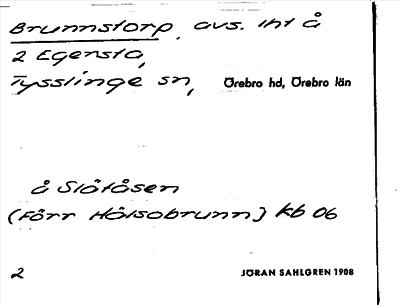 Brunnstorp, avs. iht å
2 Egersta,
Tysslinge sn, Örebro hd, Örebro län
å Slätåsen
(Förr Hälsobrunn) kb 06
2 JÖRAN SAHLGREN 1908